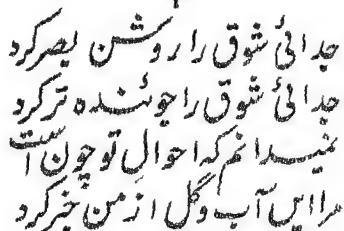 جدائی شوق را روشن بصر کرد
جدائی شوق را جوئندہ تر کرد
نمیدانم کہ احوالِ تو چون است
مرا این آب و گل از من خبر کرد